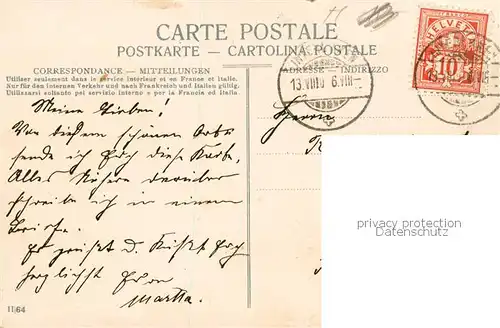 CARTE POSTALE
POSTKARTE — CARTOLINA POSTALE
CORRESPONDANCE — MITTEILUNGEN
ADRESSE — INDIRIZZO
Utiliser seulement dans le service interieur et en France et Italie.
Nur für den internen Verkehr und nach Frankreich und Italien gültig.
Utilizzarsi soltanto pei servizio interno e per la Francia ed Italia.
HELVETIA
10
13.VIII
Herrn
Meine Lieben!
Von diesem schönen Orte
sende ich Euch diese Karte,
Alles Nähere darüber
schreibe ich in einem
Briefe.
Es grüsst u. küsst Euch
herzlichst Eure
Martha.
privacy protection
Datenschutz
1164